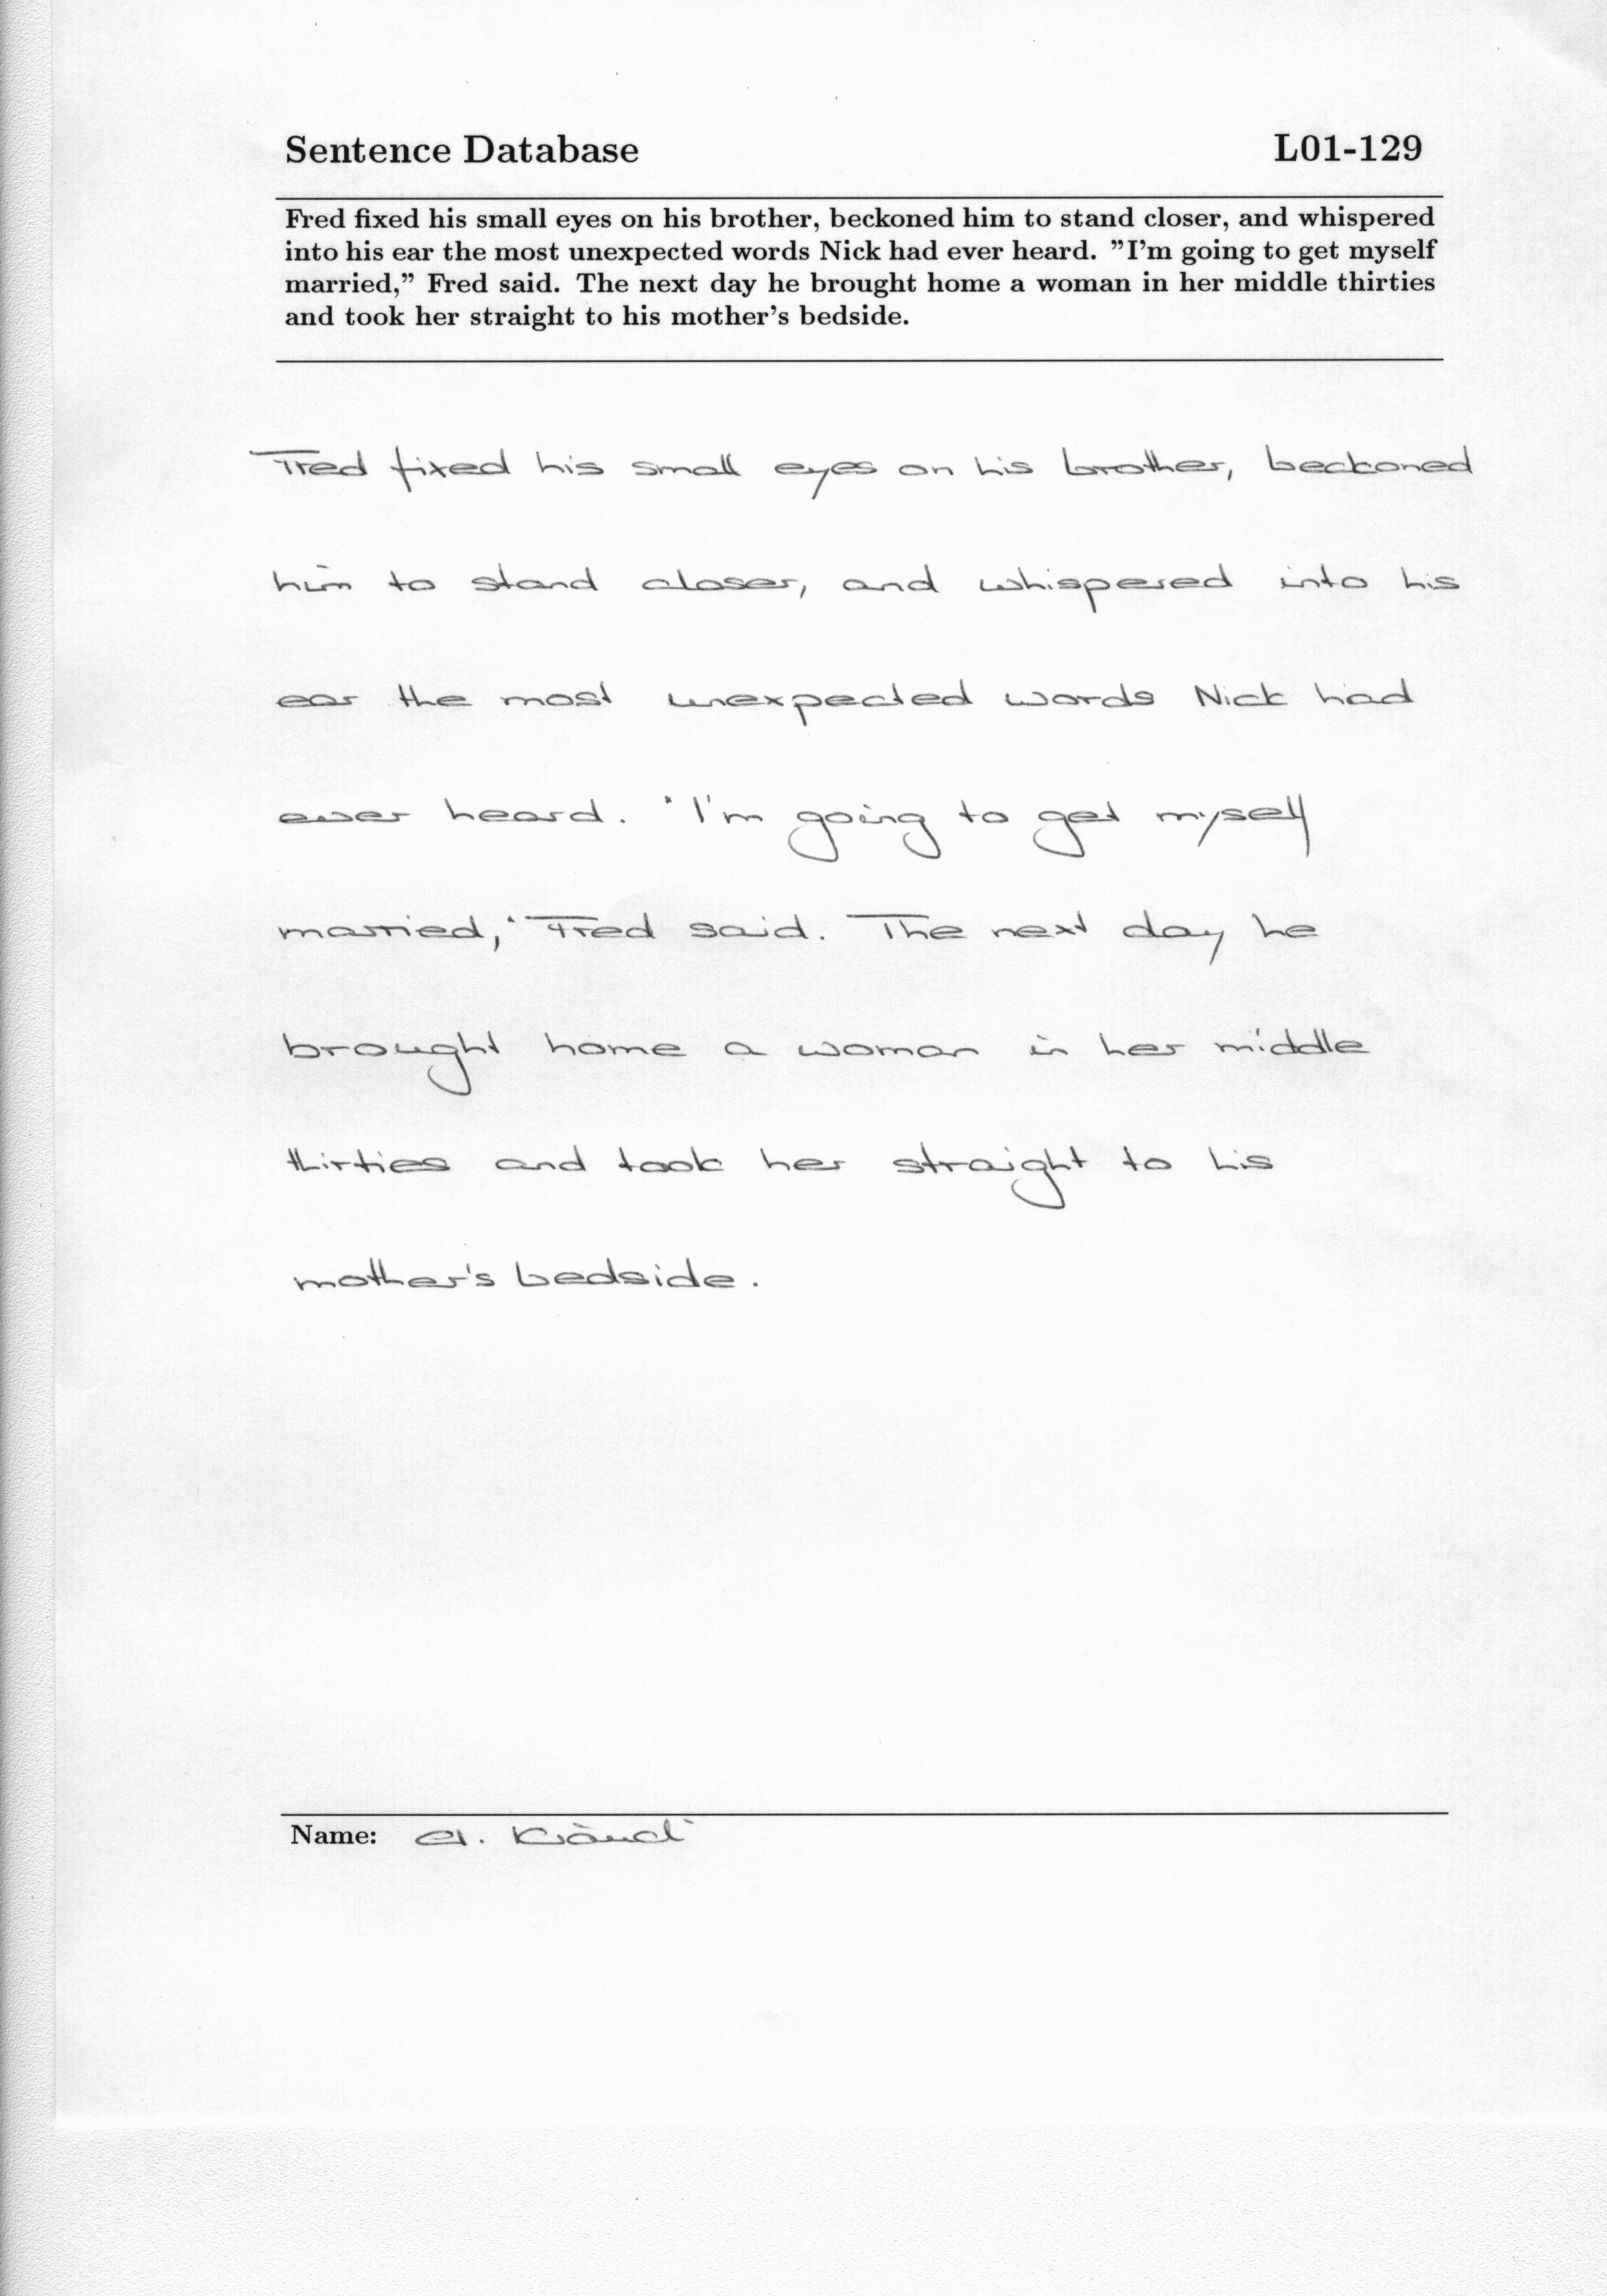 Sentence Database L01-129
Fred fixed his small eyes on his brother, beckoned him to stand closer, and whispered
into his ear the most unexpected words Nick had ever heard. ”I’m going to get myself
married,” Fred said. The next day he brought home a woman in her middle thirties
and took her straight to his mother’s bedside.
Fred fixed his small eyes on his brother, beckoned
him to stand closer, and whispered into his
ear the most unexpected words Nick had
ever heard. "I'm going to get myself
married," Fred said. The next day he
brought home a woman in her middle
thirties and took her straight to his
mother's bedside.
Name: